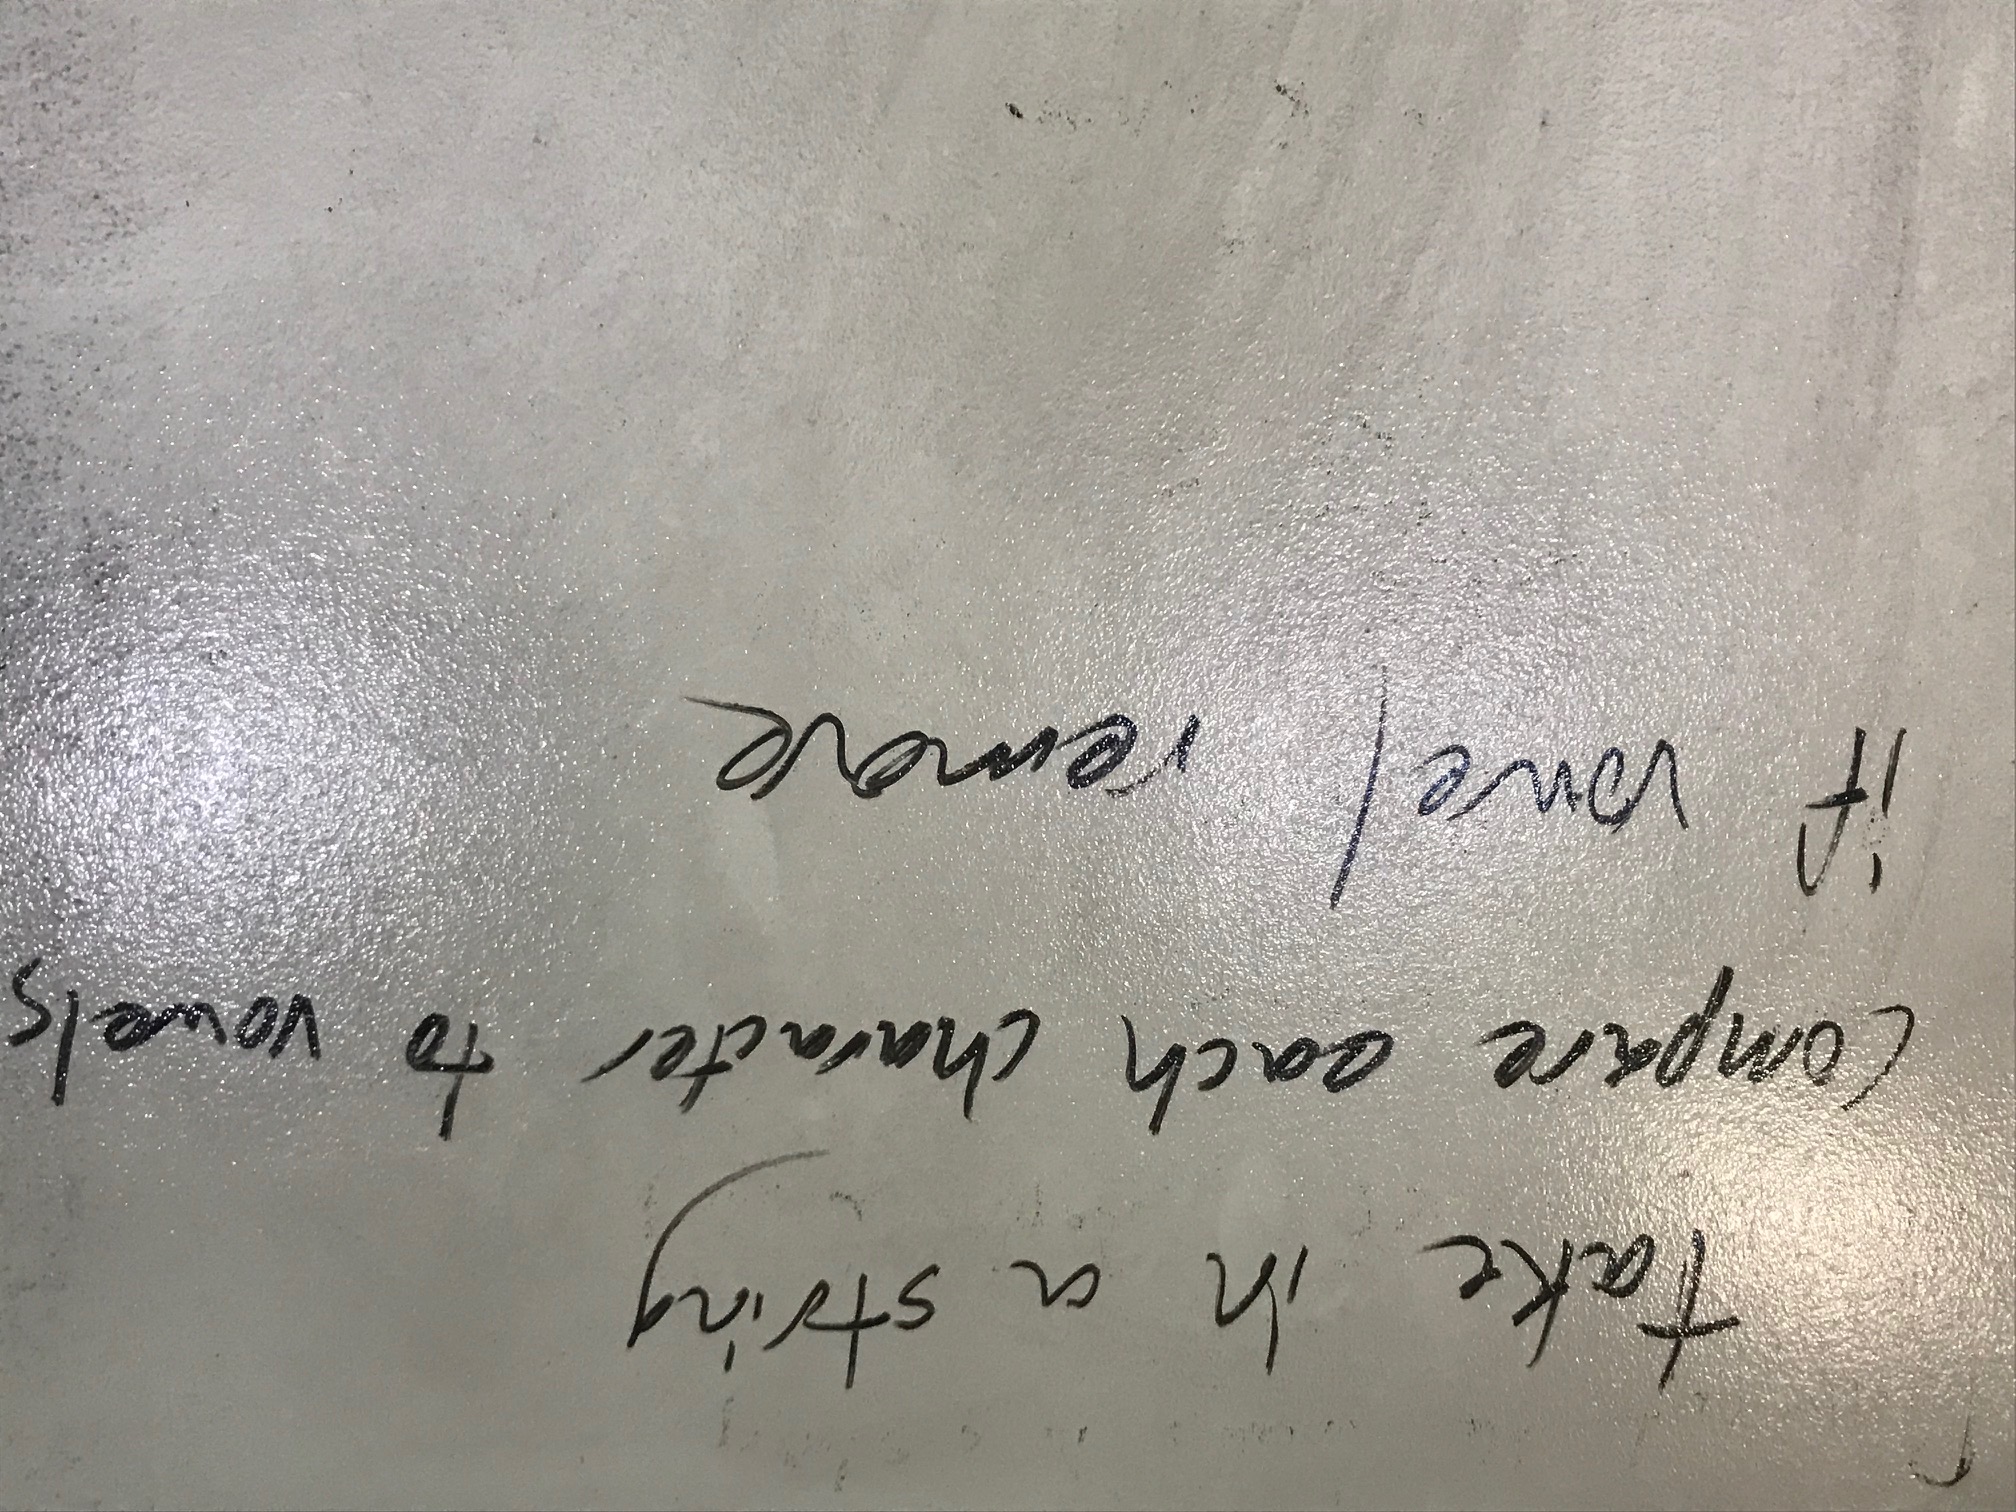 Take in a string
compare each character to vowels
if vowel remove